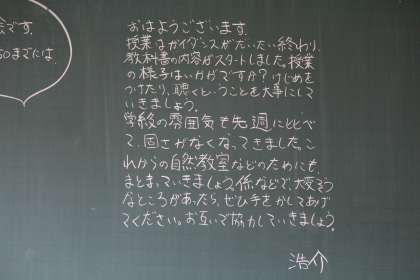 会です。
50までには、
おはようございます。
授業はガイダンスがだいたい終わり、
教科書の内容がスタートしました。授業
の様子はいかがですか？けじめを
つけたり、聴くということを大事にして
いきましょう。
学級の雰囲気も先週にくらべ
て、固さがなくなってきました。こ
れからの自然教室などのためにも、
まとまっていきましょう。係などで、大変そう
なところがあったら、ぜひ手をかしてあげ
てください。お互いで協力していきましょう。
浩介